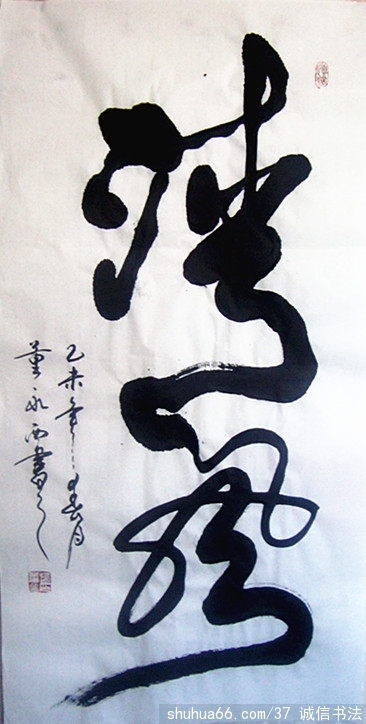 清風
乙未年春月
董永西書之
shuhua66.com/37 诚信书法